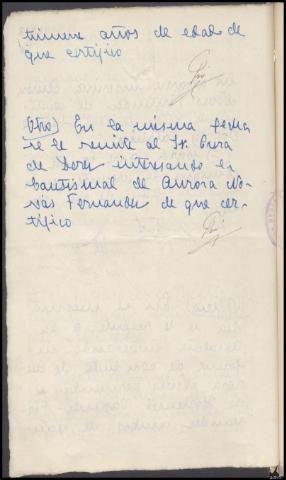 años de edad de
que certifico
Otro) En la misma fecha
se le remite al Sr. Cura
de interesando la
bautismal de Aurora No-
vás Fernandez de que cer-
tifico